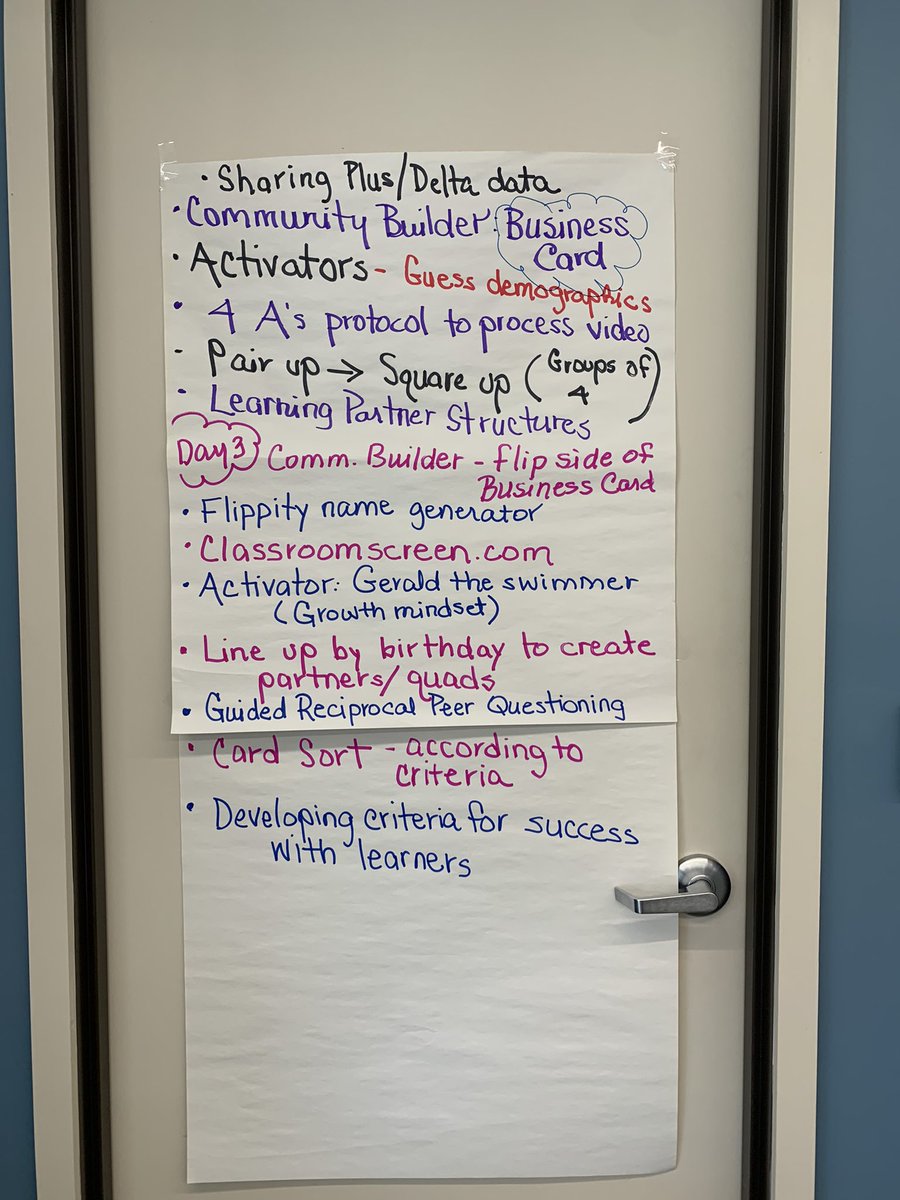 · Sharing Plus/Delta data
· Community Builder: Business
Card
· Activators - Guess demographics
· 4 A's protocol to process video
- Pair up → Square up (Groups of
4)
· Learning Partner Structures
Day 3 Comm. Builder - flip side of
Business Card
· Flippity name generator
· Classroomscreen.com
· Activator: Gerald the swimmer
(Growth mindset)
· Line up by birthday to create
partners/quads
· Guided Reciprocal Peer Questioning
· Card Sort - according to
criteria
· Developing criteria for success
with learners